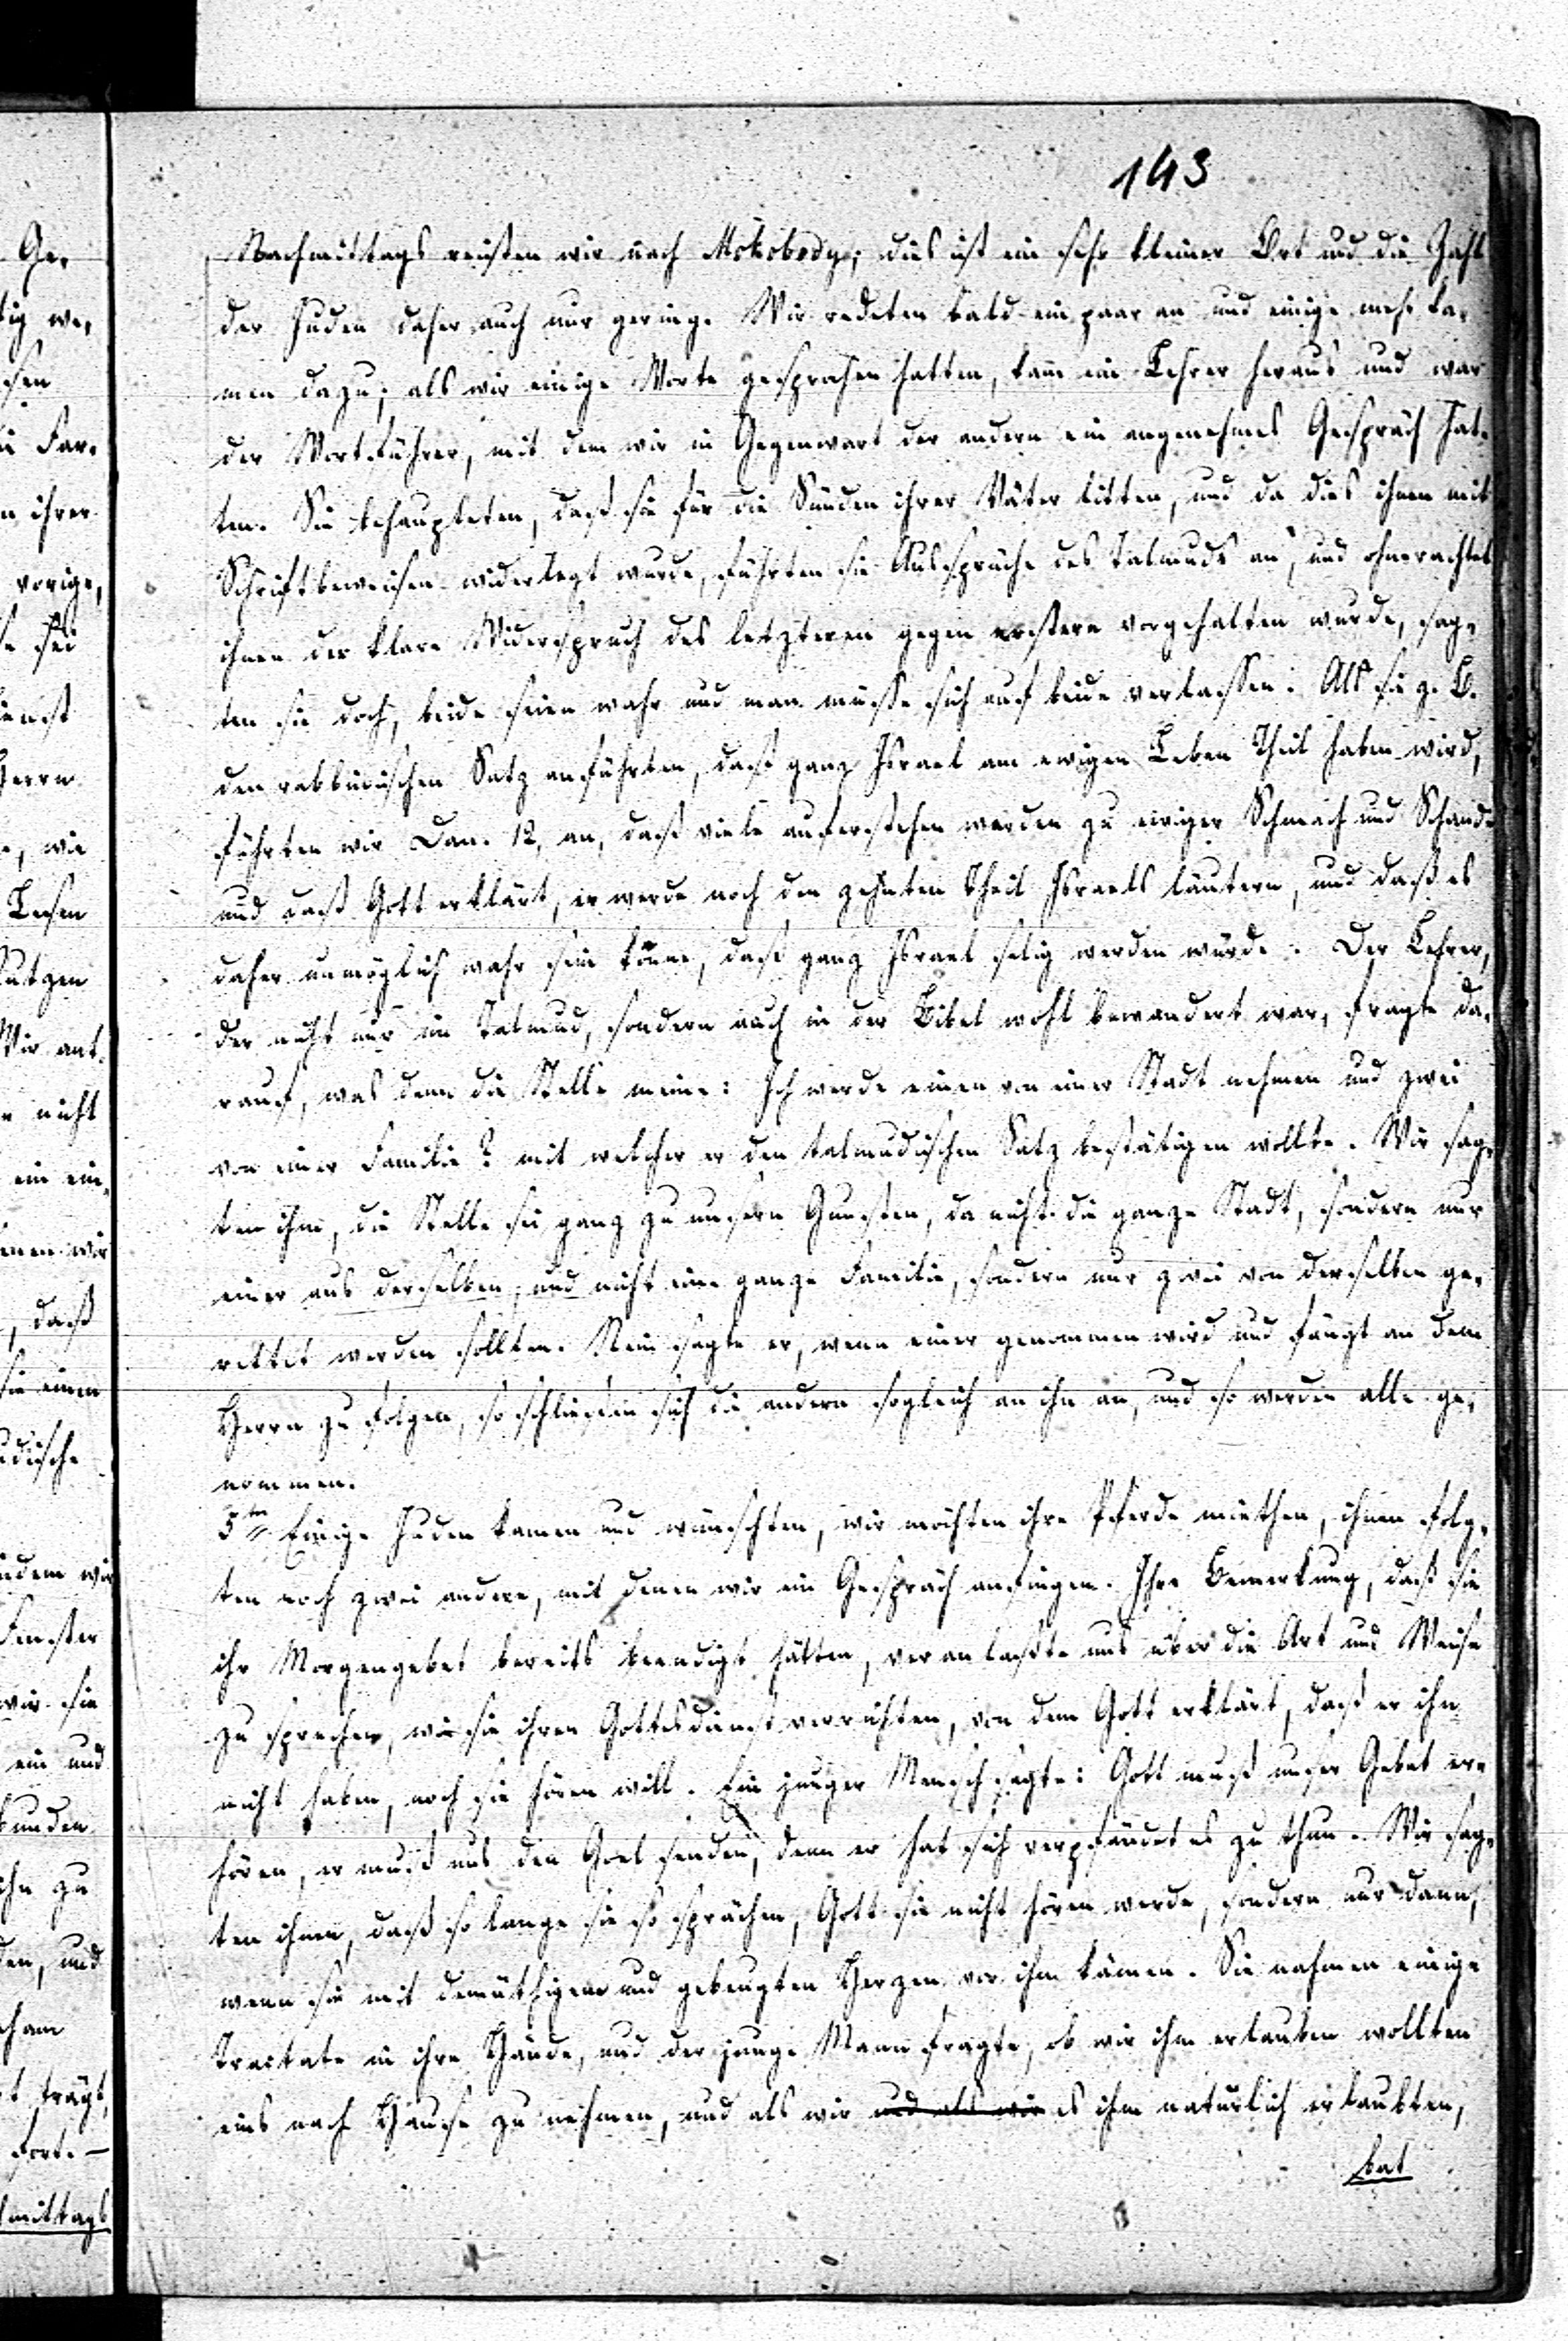 143
Nachmittags reisten wir nach Mokobody; dies ist ein sehr kleiner Ort und die Zahl
der Juden daher auch nur gering. Wir redeten bald ein paar an und einige mehr ka-
men dazu; als wir einige Worte gesprochen hatten, kam ein Lehrer heraus und war
der Wortführer, mit dem wir in Gegenwart der andern ein angenehmes Gespräch hat-
ten. Sie behaupteten, daß sie für die Sünden ihrer Väter litten, und da dies ihnen mit
Schriftbeweisen widerlegt wurde, führten sie Aussprüche des Talmuds an, und ohnerachtet
ihnen der klare Widerspruch des letzteren gegen erstere vorgehalten wurde, sag-
ten sie doch, beide seien wahr und man müsse sich auf beide verlassen. Als sie z. B.
den rabbinischen Satz anführten, daß ganz Israel am ewigen Leben Theil haben wird,
führten wir Dan. 12, an, daß viele auferstehen werden zu ewiger Schmach und Schande
und daß Gott erklärt, er werde noch den zehnten Theil Israels läutern, und daß es
daher unmöglich wahr sein könne, daß ganz Israel selig werden würde. Der Lehrer,
der nicht nur im Talmud, sondern auch in der Bibel wohl bewandert war, fragte da-
rauf, was denn die Stelle meine: Ich werde einen von einer Stadt nehmen und zwei
von einer Familie? mit welcher er den talmudischen Satz bestätigen wollte. Wir sag-
ten ihm, die Stelle sei ganz zu unsern Gunsten, da nicht die ganze Stadt, sondern nur
einer aus derselben, und nicht eine ganze Familie, sondern nur zwei von derselben ge-
rettet werden sollten. Nein sagte er, wenn einer genommen wird und fängt an dem
Herrn zu folgen, so schließen sich die andern sogleich an ihn an, und so werden alle ge-
nommen.
5ten Einige Juden kamen und wünschten, wir möchten ihre Pferde miethen, ihnen folg-
ten noch zwei andere, mit denen wir ein Gespräch anfingen. Ihre Bemerkung, daß sie
ihr Morgengebet bereits beendigt hätten, veranlaßte uns über die Art und Weise
zu sprechen, wie sie ihren Gottesdienst verrichten, von dem Gott erklärt, daß er ihn
nicht haben, noch sie hören will. Ein junger Mensch sagte: Gott muß unser Gebet er-
hören, er muß uns den Goel senden, denn er hat sich verpfändet es zu thun. Wir sag-
ten ihnen, daß so lange sie so sprächen, Gott sie nicht hören werde, sondern nur dann,
wenn sie mit demüthigem und gebeugten Herzen vor ihm kämen. Sie nahmen einige
Tractate in ihre Hände, und der junge Mann fragte, ob wir ihm erlauben wollten
eins nach Hause zu nehmen, und als wir und als wir es ihm natürlich erlaubten,
bat